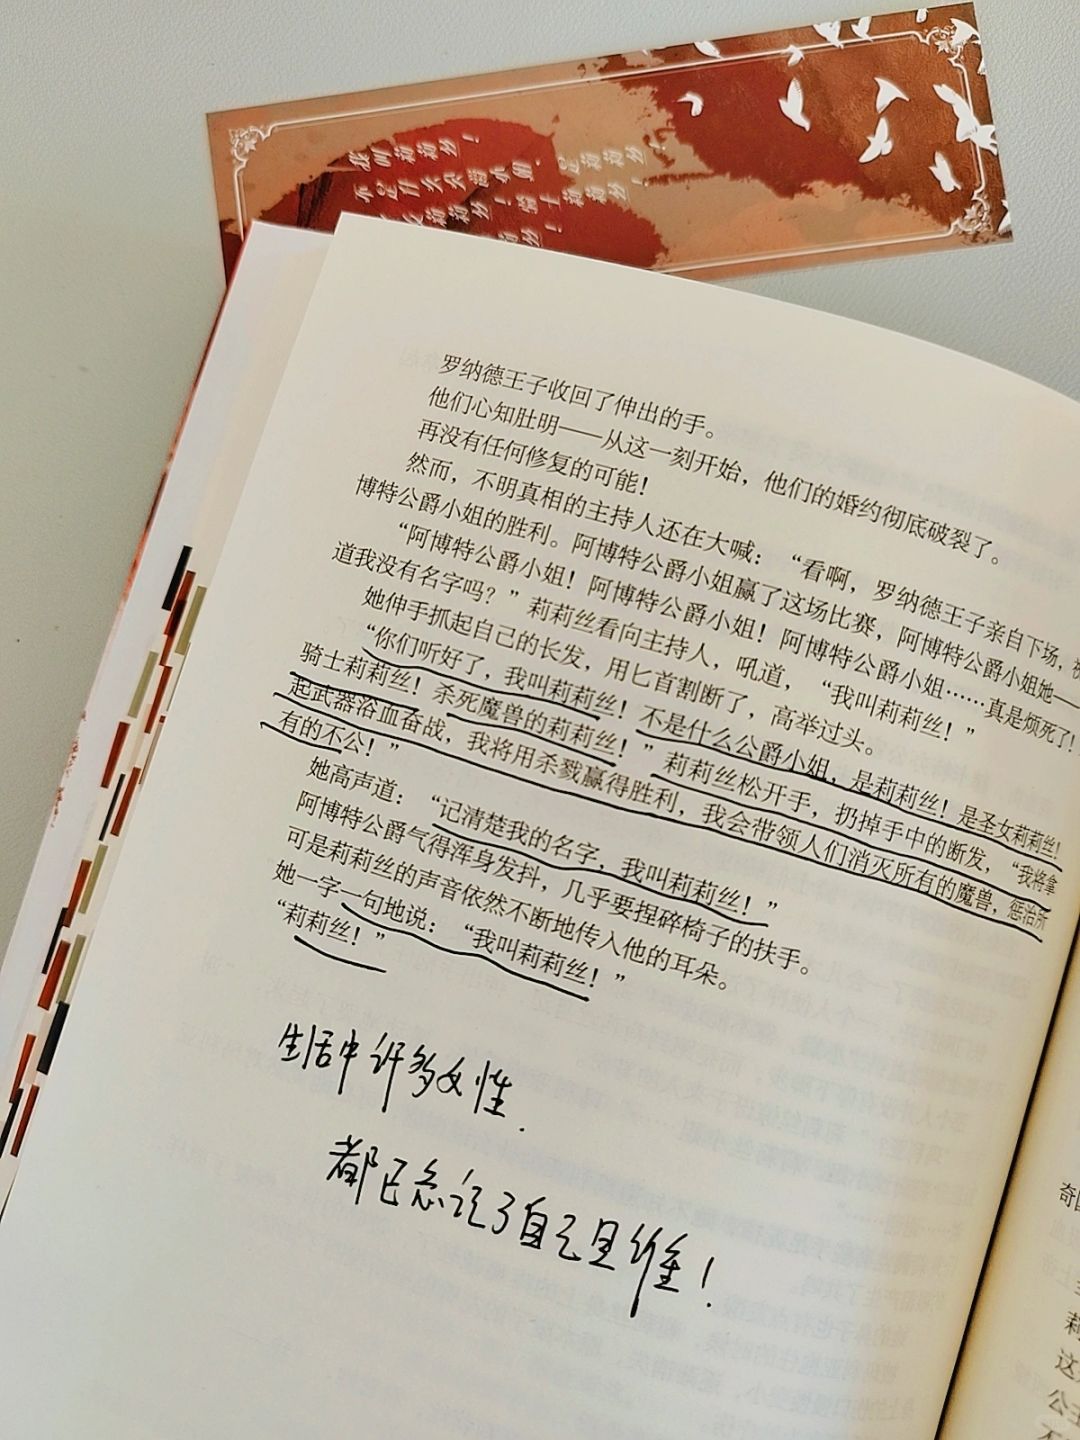 罗纳德王子收回了伸出的手。
他们心知肚明——从这一刻开始，他们的婚约彻底破裂了。
再没有任何修复的可能！
然而，不明真相的主持人还在大喊：“看啊，罗纳德王子亲自下场，
博特公爵小姐的胜利。阿博特公爵小姐赢了这场比赛，阿博特公爵小姐她——
“阿博特公爵小姐！阿博特公爵小姐！阿博特公爵小姐……真是烦死了！
道我没有名字吗？”莉莉丝看向主持人，吼道，“我叫莉莉丝！”
她伸手抓起自己的长发，用匕首割断了，高举过头。
“你们听好了，我叫莉莉丝！不是什么公爵小姐，是莉莉丝！是圣女莉莉丝！
骑士莉莉丝！杀死魔兽的莉莉丝！”莉莉丝松开手，扔掉手中的断发，“我将拿
起武器浴血奋战，我将用杀戮赢得胜利，我会带领人们消灭所有的魔兽，惩治所
有的不公！”
她高声道：“记清楚我的名字，我叫莉莉丝！”
阿博特公爵气得浑身发抖，几乎要捏碎椅子的扶手。
可是莉莉丝的声音依然不断地传入他的耳朵。
她一字一句地说：“我叫莉莉丝！”
“莉莉丝！”
生活中许多女性.
都已忘记了自己是谁！
奇
莉
这
公
不